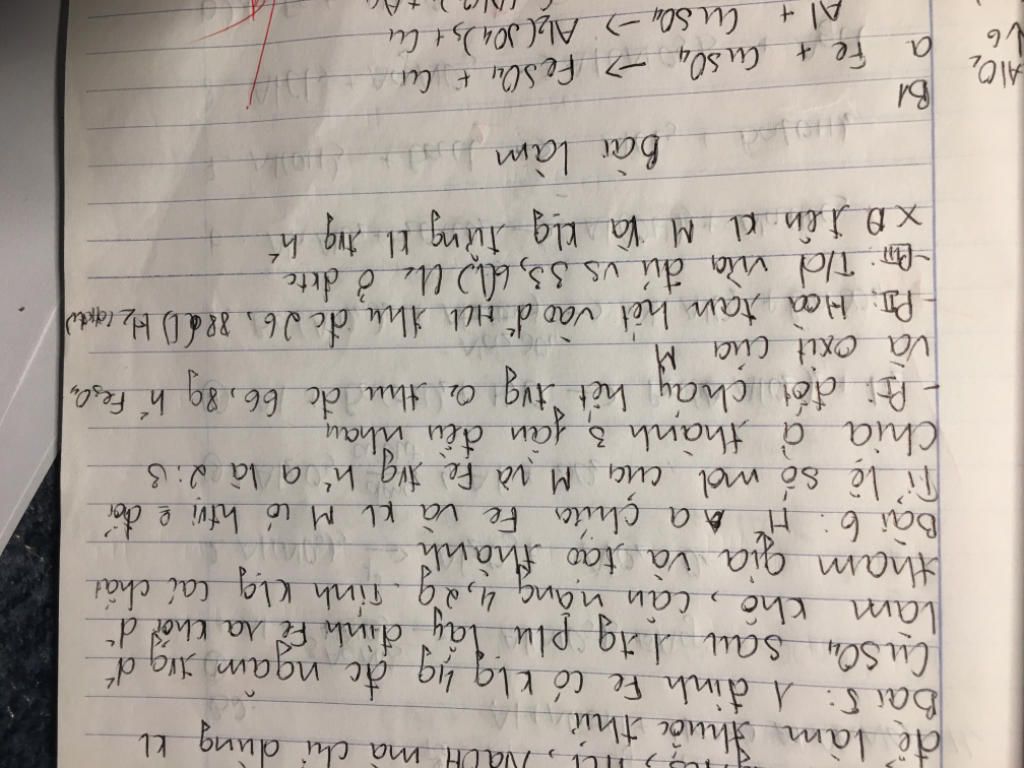 để làm thuốc thử
Bài 5: 1 đinh Fe có klg 4g đc ngâm trg d²
CuSO₄ sau 1 tg pứ lấy đinh Fe ra khỏi d²
làm khô, cân nặng 4,2g. Tính klg các chất
tham gia và tạo thành
Bài 6: H² A chứa Fe và kl M có htrị e đổi
Tỉ lệ số mol của M và Fe trg h² a là 2:3
Chia a thành 3 phần đều nhau
- PI: đốt cháy hết trg O₂ thu đc 66,8g h² Fe₃O₄
và oxit của M
- PII: Hoà tan hết vào d² HCl thu đc 26,88(l) H₂ (đktc)
- PIII: T/d vừa đủ vs 33,6(l) Cl₂ ở đktc
XĐ tên kl M và klg từng kl trg h²
Bài làm
B1
a Fe + CuSO₄ → FeSO₄ + Cu
Al + CuSO₄ → Al₂(SO₄)₃ + Cu
AlO₂